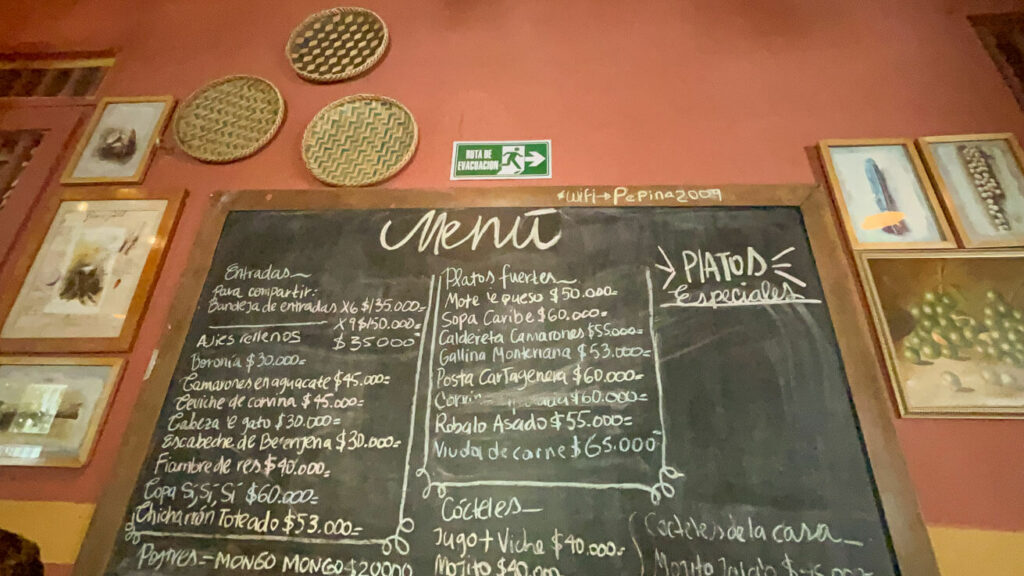 RUTA DE
EVACUACIÓN
*Wifi→Pepina2009
Menú
Entradas
Para compartir:
Bandeja de entradas X6 $135.000=
X9 $150.000=
Ajies rellenos $35000
Boronía $30.000=
Camarones en aguacate $45.000=
Ceviche de corvina $45.000=
Cabeza e gato $30.000=
Escabeche de Berenjena $30.000=
Fiambre de res $40.000=
Copa Sí, Sí, Sí $60.000=
Chicharrón Toteado $53.000=
Postres = MONGO MONGO $20000
Platos fuertes
Mote e queso $50.000=
Sopa Caribe $60.000=
Caldereta Camarones $55.000=
Gallina Monteriana $53.000=
Posta Cartagenera $60.000=
$60.000=
Robalo Asado $55.000=
Viuda de carne $65.000=
Cócteles
Jugo + Viche $40.000=
Mojito $40.000
PLATOS
Especiales
Cócteles de la casa
Mojito